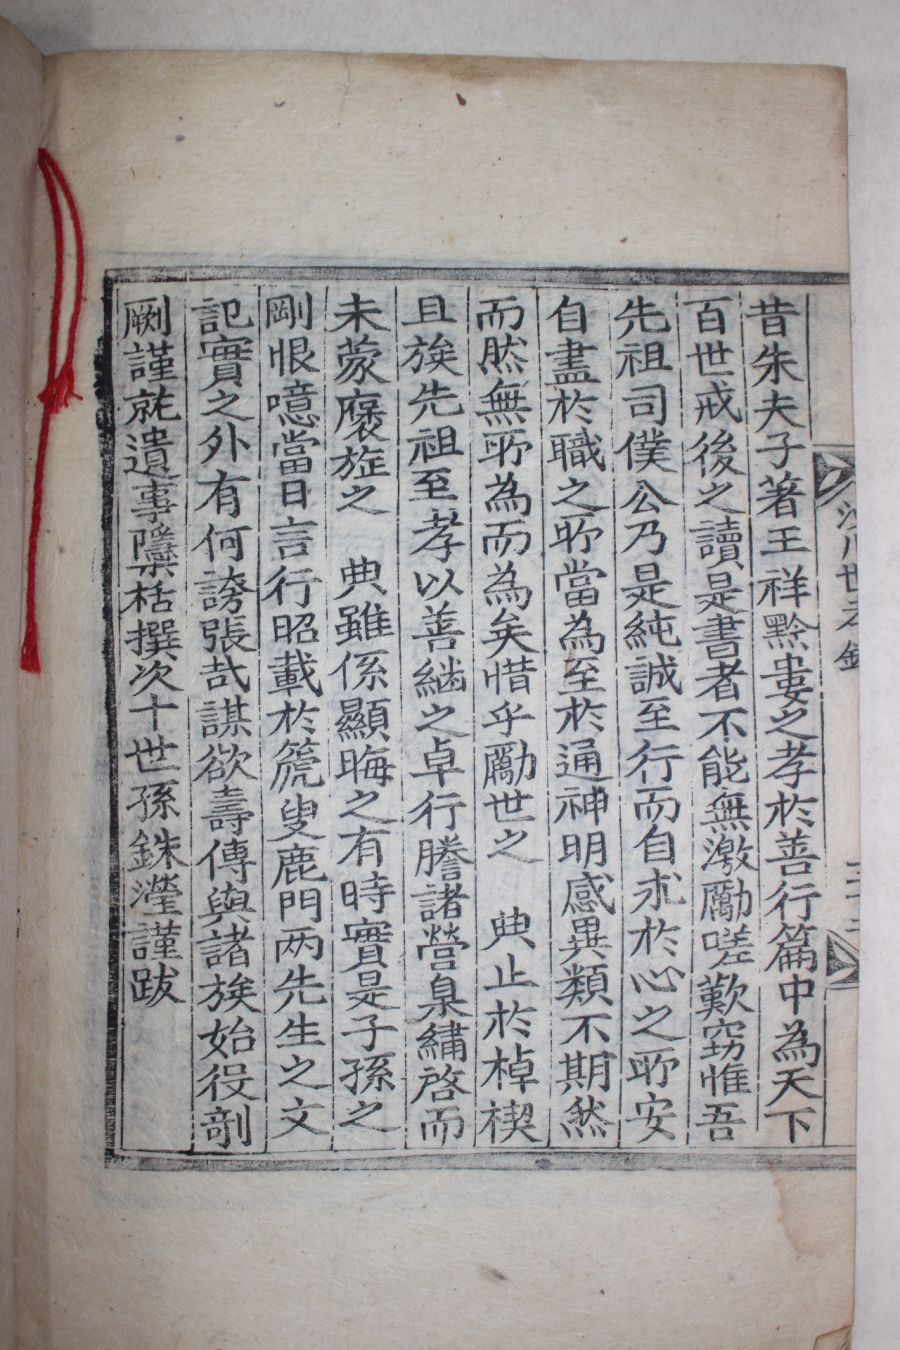 昔朱夫子著王祥黔婁之孝於善行篇中為天下
百世戒後之讀是書者不能無激勵嗟歎窃惟吾
先祖司僕公乃是純誠至行而自求於心之所安
自盡於職之所當為至於通神明感異類不期然
而然無所為而為矣惜乎勵世之　典止於棹禊
且族先祖至孝以善継之卓行謄諸營臬繡啓而
未蒙褒旌之　典雖係顯晦之有時實是子孫之
剛恨噫當日言行昭載於篪叟鹿門两先生之文
記實之外有何誇張㢤謀欲壽傳與諸族始役剞
劂謹就遺事隱栝撰次十世孫銖瀅謹跋
川世孝錄